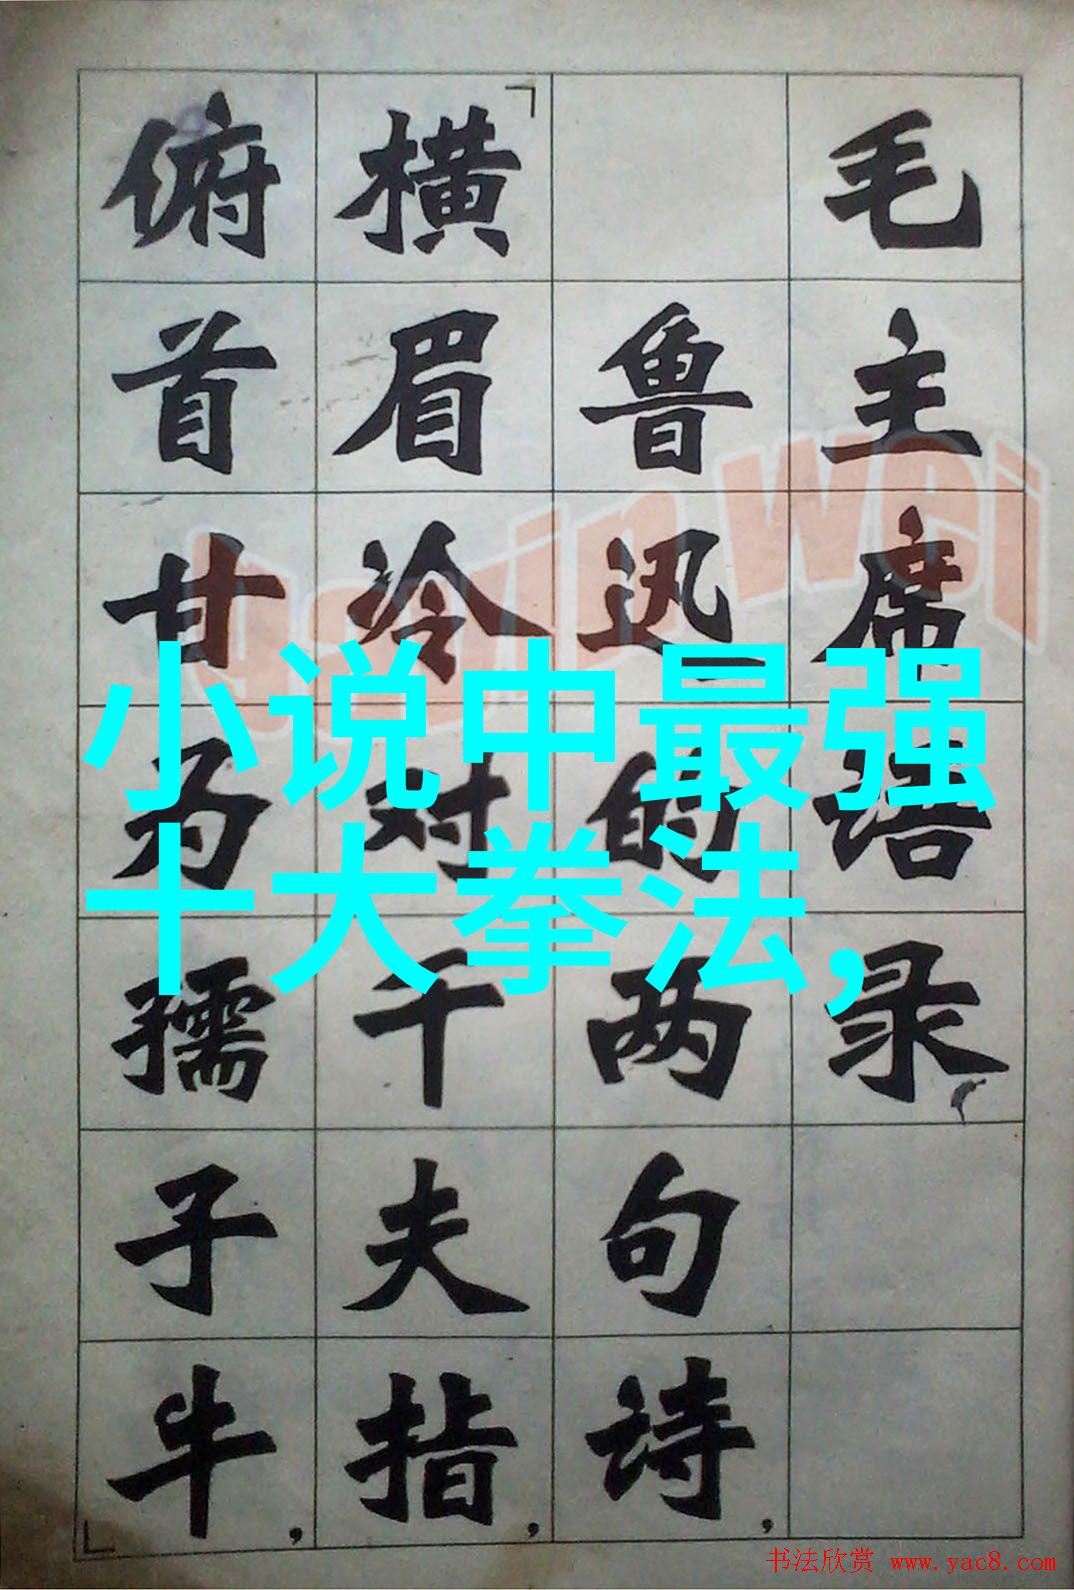 毛主席语录
鲁迅的两句诗,
「横眉冷对千夫指,
俯首甘为孺子牛,」
小说中最强
十大拳法,
书法欣赏 www.yac8.com